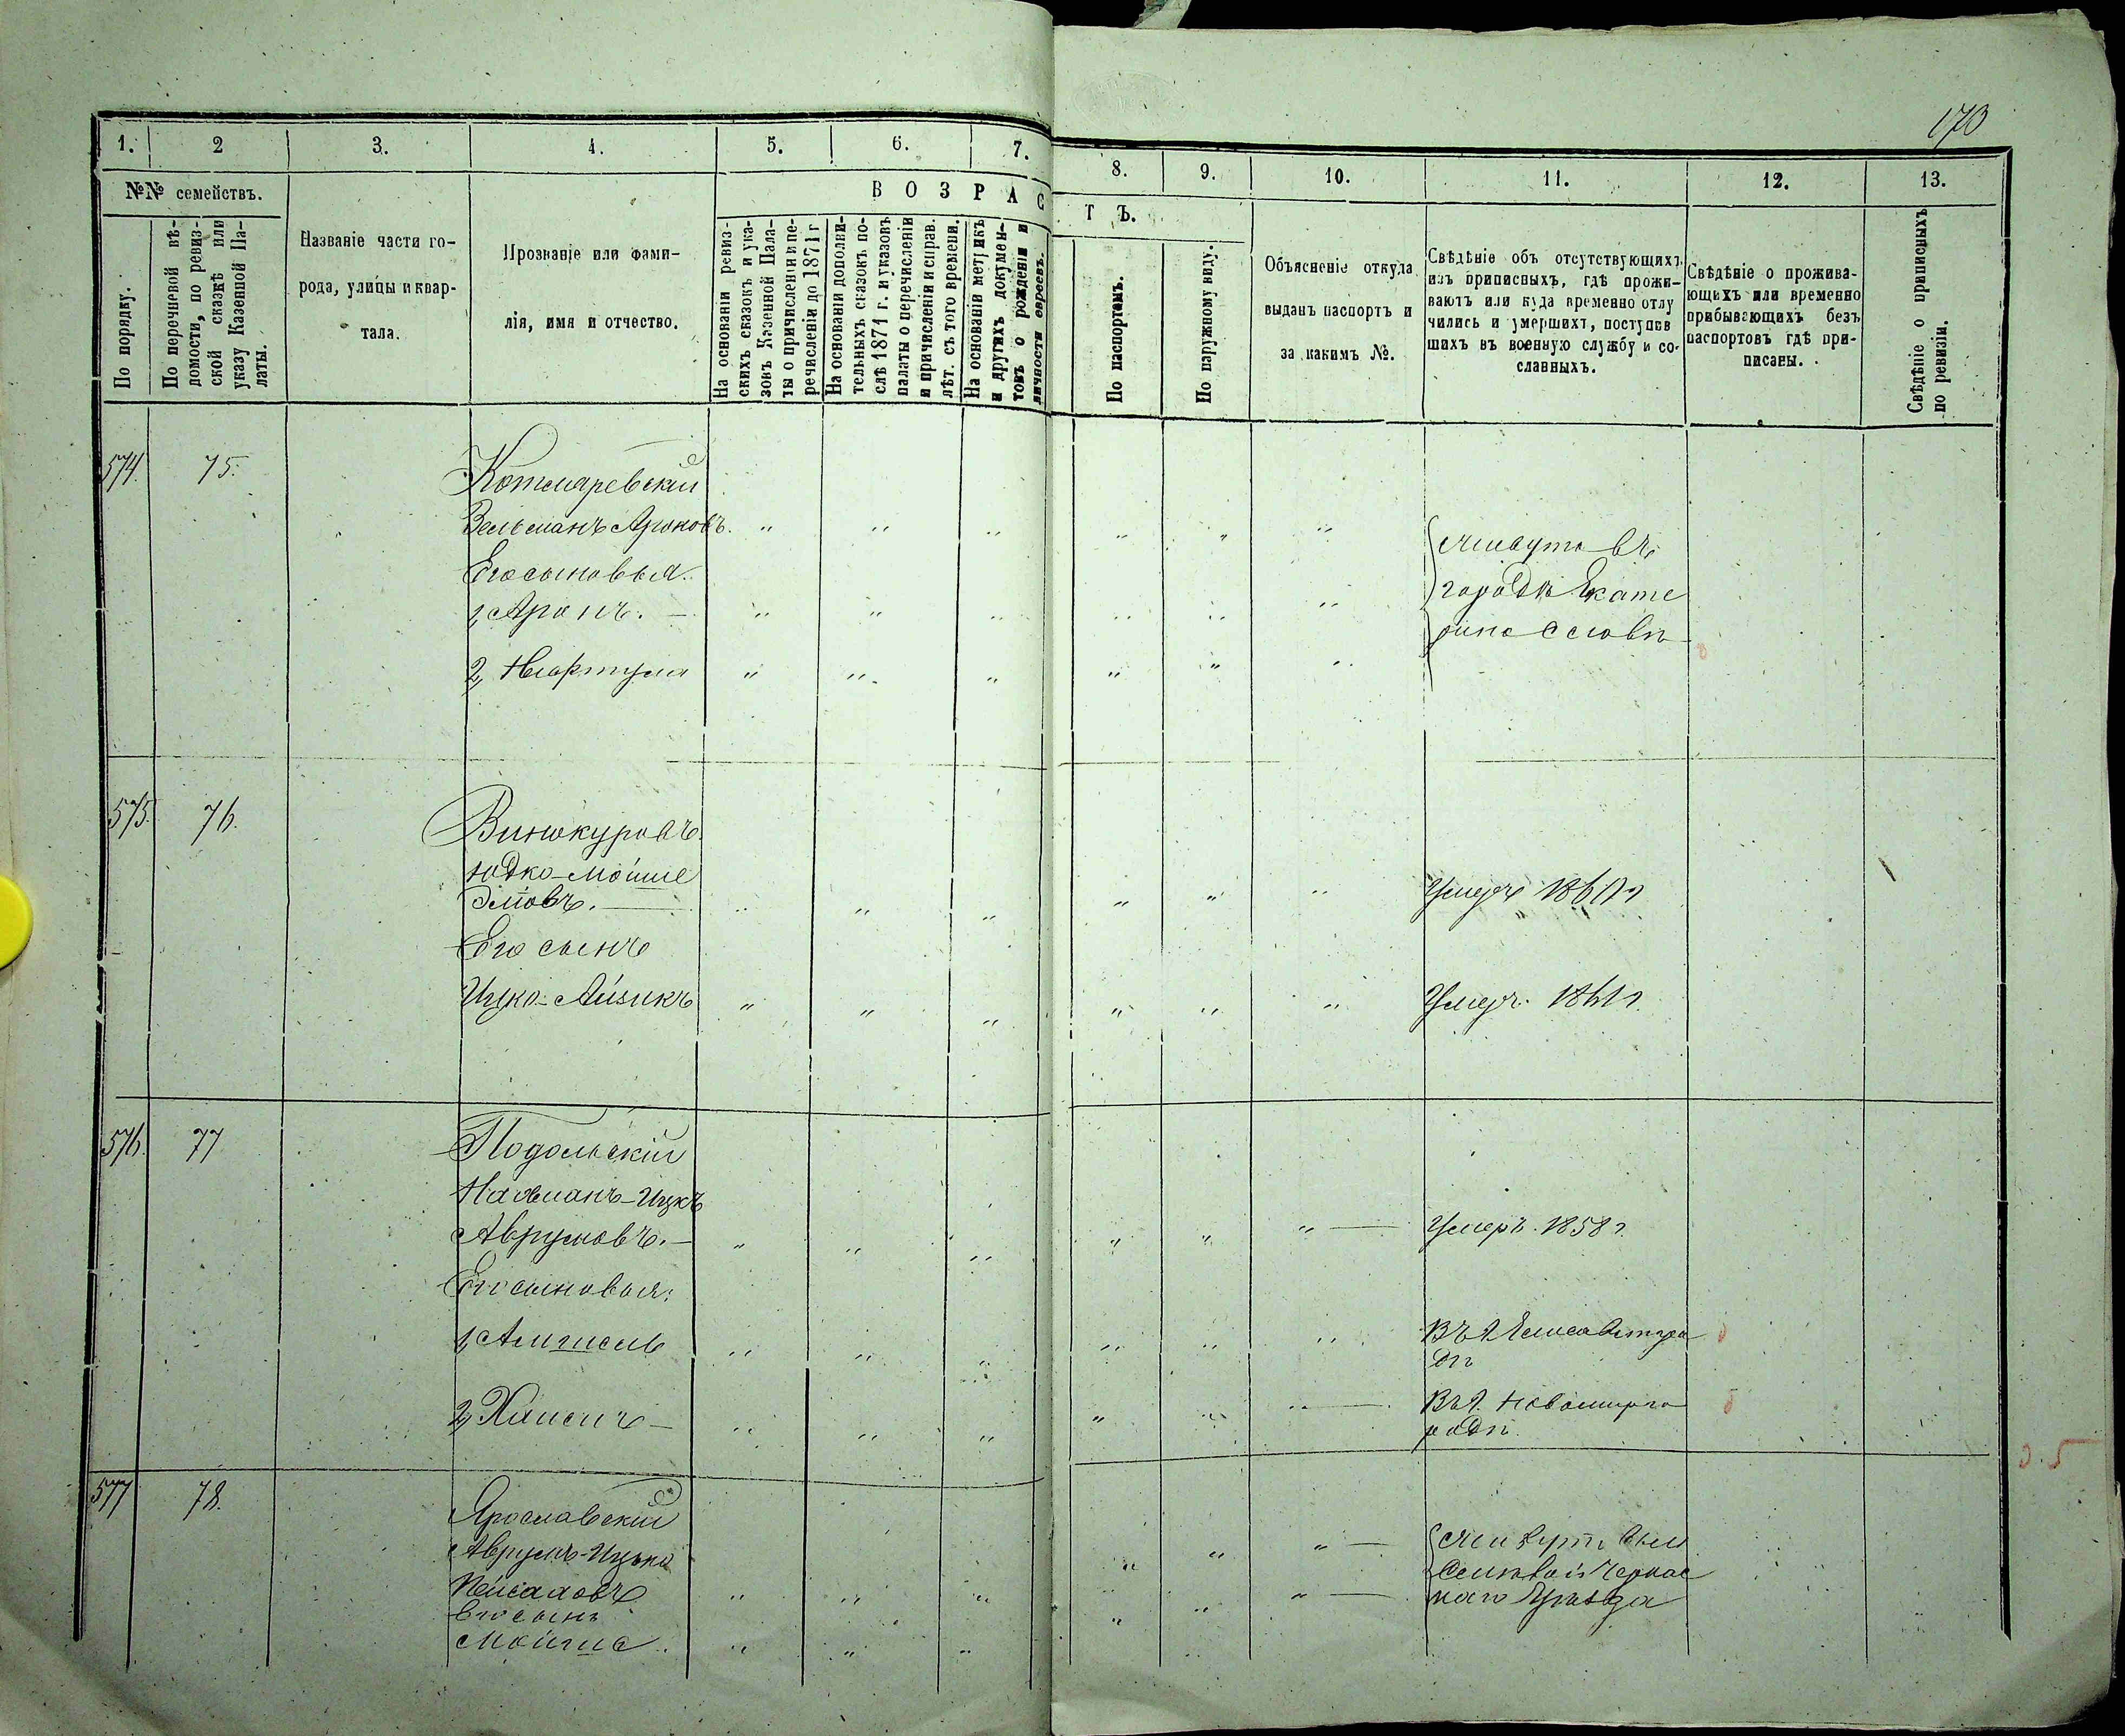 170
1. 2 3. 4. 5. 6. 7. 8. 9. 10. 11. 12. 13.
№№ семействъ.
По порядку.
По перечневой вѣ-
домости, по ревиз-
ской сказкѣ или
указу Казенной Па-
латы.
Названіе части го-
рода, улицы и квар-
тала.
Прозваніе или фами-
лія, имя и отчество.
ВОЗРАСТЪ.
На основаніи ревиз-
скихъ сказокъ и ука-
зовъ Казенной Пала-
ты о причисленіи и пе-
речисленіи до 1871 г
На основаніи дополни-
тельныхъ сказокъ по-
слѣ 1871 г. и указовъ
палаты о перечисленіи
и причисленіи и справ.
лѣт. съ того времени.
На основаніи метрикъ
и другихъ докумен-
товъ о рожденіи и
личности евреевъ.
По паспортамъ.
По наружному виду.
Объясненіе откуда
выданъ паспортъ и
за какимъ №.
Свѣдѣніе объ отсутствующихъ
изъ приписныхъ, гдѣ прожи-
ваютъ или куда временно отлу
чились и умершихъ, поступив
шихъ въ военную службу и со-
сланныхъ.
Свѣдѣніе о прожива-
ющихъ или временно
прибывающихъ безъ
паспортовъ гдѣ при-
писаны.
Свѣдѣніе о приписныхъ
по ревизіи.
574. 75. Котляревскій
Зельманъ Ароновъ.
Его сыновья.
1, Аронъ.
2,
живутъ въ
городѣ Екате
ринославѣ
575. 76. Винокуровъ
Юдко-Мойше
Его сынъ
Ицко-Айзикъ
Умеръ
Умеръ 1861 г.
576. 77 Подольскій
Нахманъ-Ицкъ
Аврумовъ.
Умеръ 1858 г.
Его сыновья:
1, Аншель
Въ г. Елисаветгра
дѣ
2, Хаимъ
Въ г. Новомирго
родѣ
577 78. Ярославскій
Аврумъ-Ицько
Пейсаховъ
Его сынъ
Мойше
живутъ
Черкас
каго Уѣзда